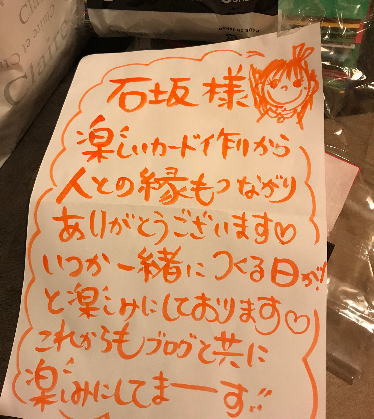 石坂様
楽しいカード作りから
人との縁もつながり
ありがとうございます♡
いつか一緒につくる日が!
と楽しみにしております♡
これからもブログと共に
楽しみにしてまーす!!